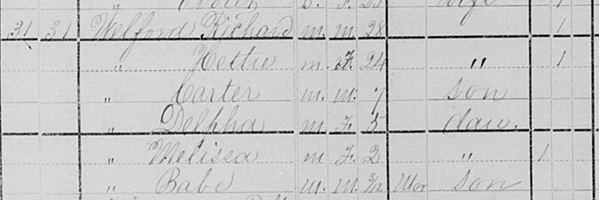 " B. F. 23 wife
31 31 Welford Richard m. m. 28 1
" Hettie m. F. 24 " 1
" Carter m. m. 7 son
" Delpha m. F. 5 dau.
" Melissa m F. 2 " 1
" Babe m. m. 5/12 Mar son